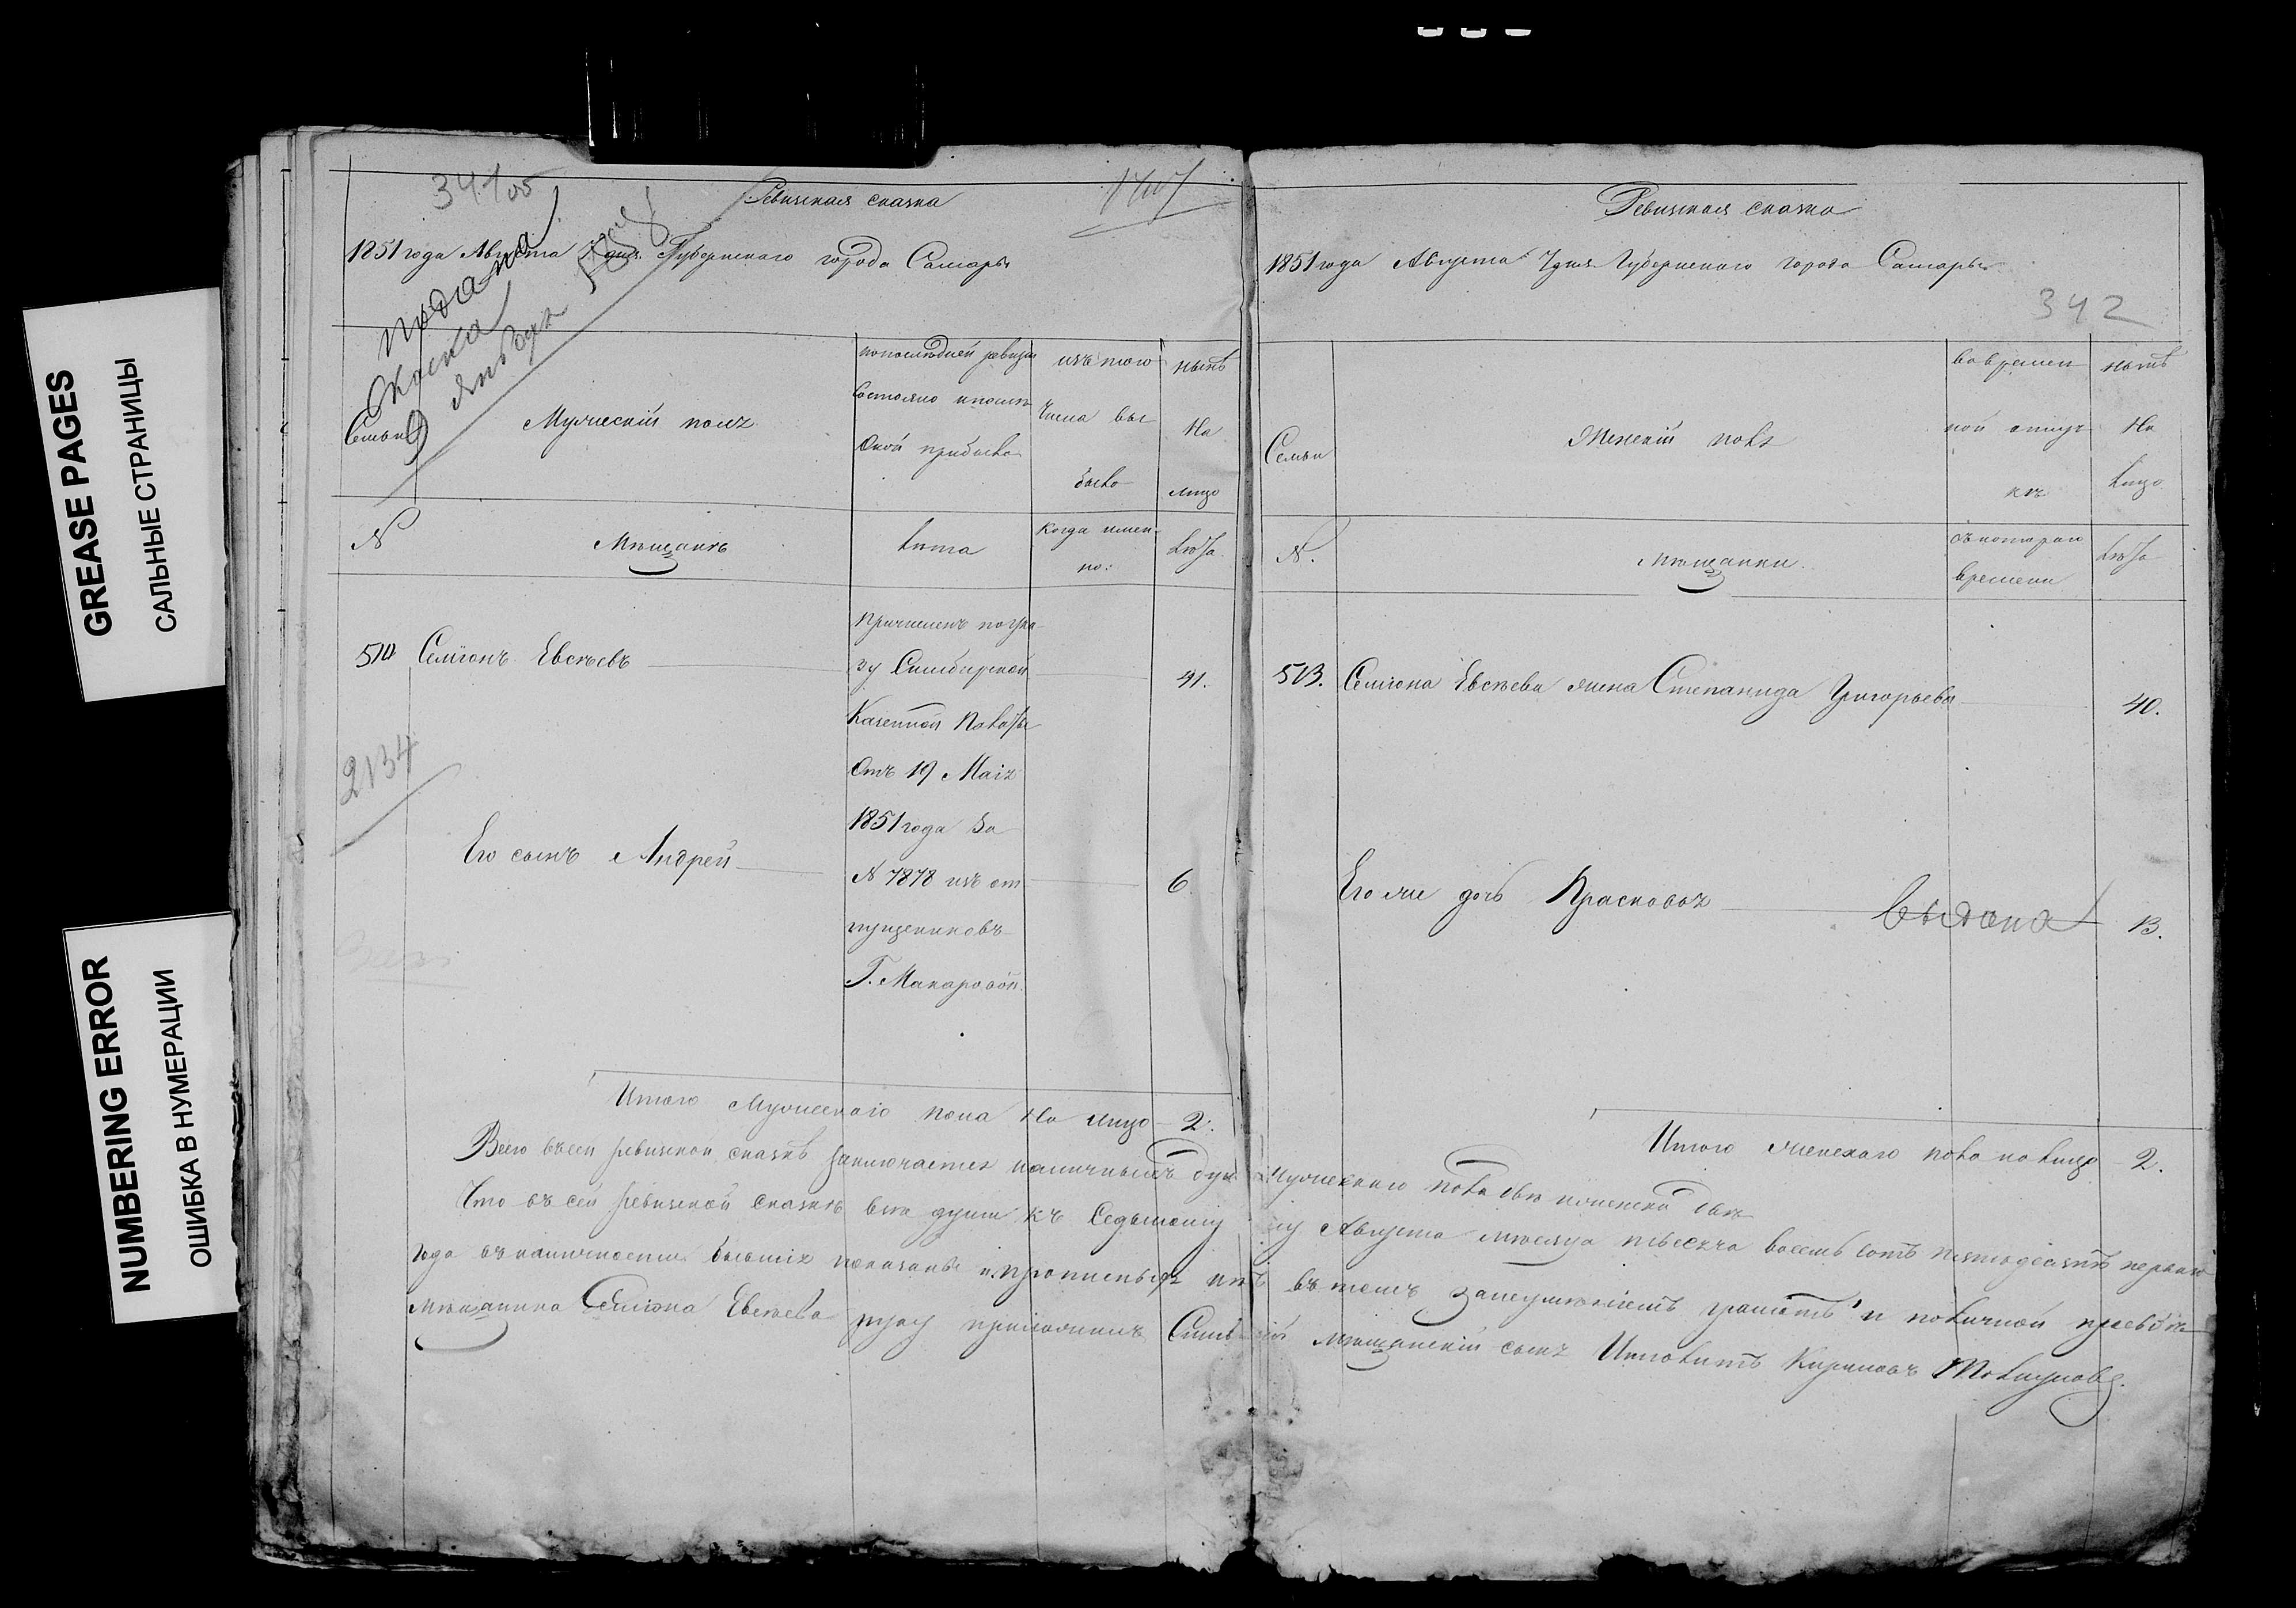 GREASE PAGES
САЛЬНЫЕ СТРАНИЦЫ
NUMBERING ERROR
ОШИБКА В НУМЕРАЦИИ
341 об
Ревизская сказка
1851 года Августа 7 дня Губернского города Самары
подана
Семьи
Мужескій полъ
по последней ревизіи
состояло и после
оной прибыло
изъ того
числа вы
было
ныне
на
лицо
№
Мѣщанъ
Лета
когда имен-
но:
Лета
Причисленъ по ука-
510 Семіонъ Евсѣевъ
зу Симбирской
41.
Казенной Палаты
отъ 19 Маія
2134
1851 года за
Его сынъ Андрей
№ 7878 изъ от
6.
пущениковъ
Г. Макаровой.
Итого Мужескаго пола на лицо 2.
Ревизская сказка
1851 года Августа 7 дня Губернского города Самары
342
Семьи
Женскій полъ
во времен
ной отлуч
кѣ
ныне
на
лицо
№.
Мѣщанки.
съ котораго
времени
Лета
513. Семіона Евсѣева жена Степанида Григорьева
40.
Его же дочь Прасковья
выдана
13.
Итого женскаго пола на лицо 2.
Всего въ сей ревизской сказкѣ заключается наличныхъ душъ Мужескаго пола двѣ и женска двѣ
Что въ сей ревизской сказкѣ все души къ Седьмому Августа месяца тысяча восемь сотъ пятьдесятъ перваго
года въ наличности бывшія показаны и прописныхъ нѣтъ въ томъ за неумѣніемъ грамотѣ и по личной прозьбѣ
мѣщанина Семіона Евсѣева руку приложилъ мѣщанскій сынъ Кириловъ